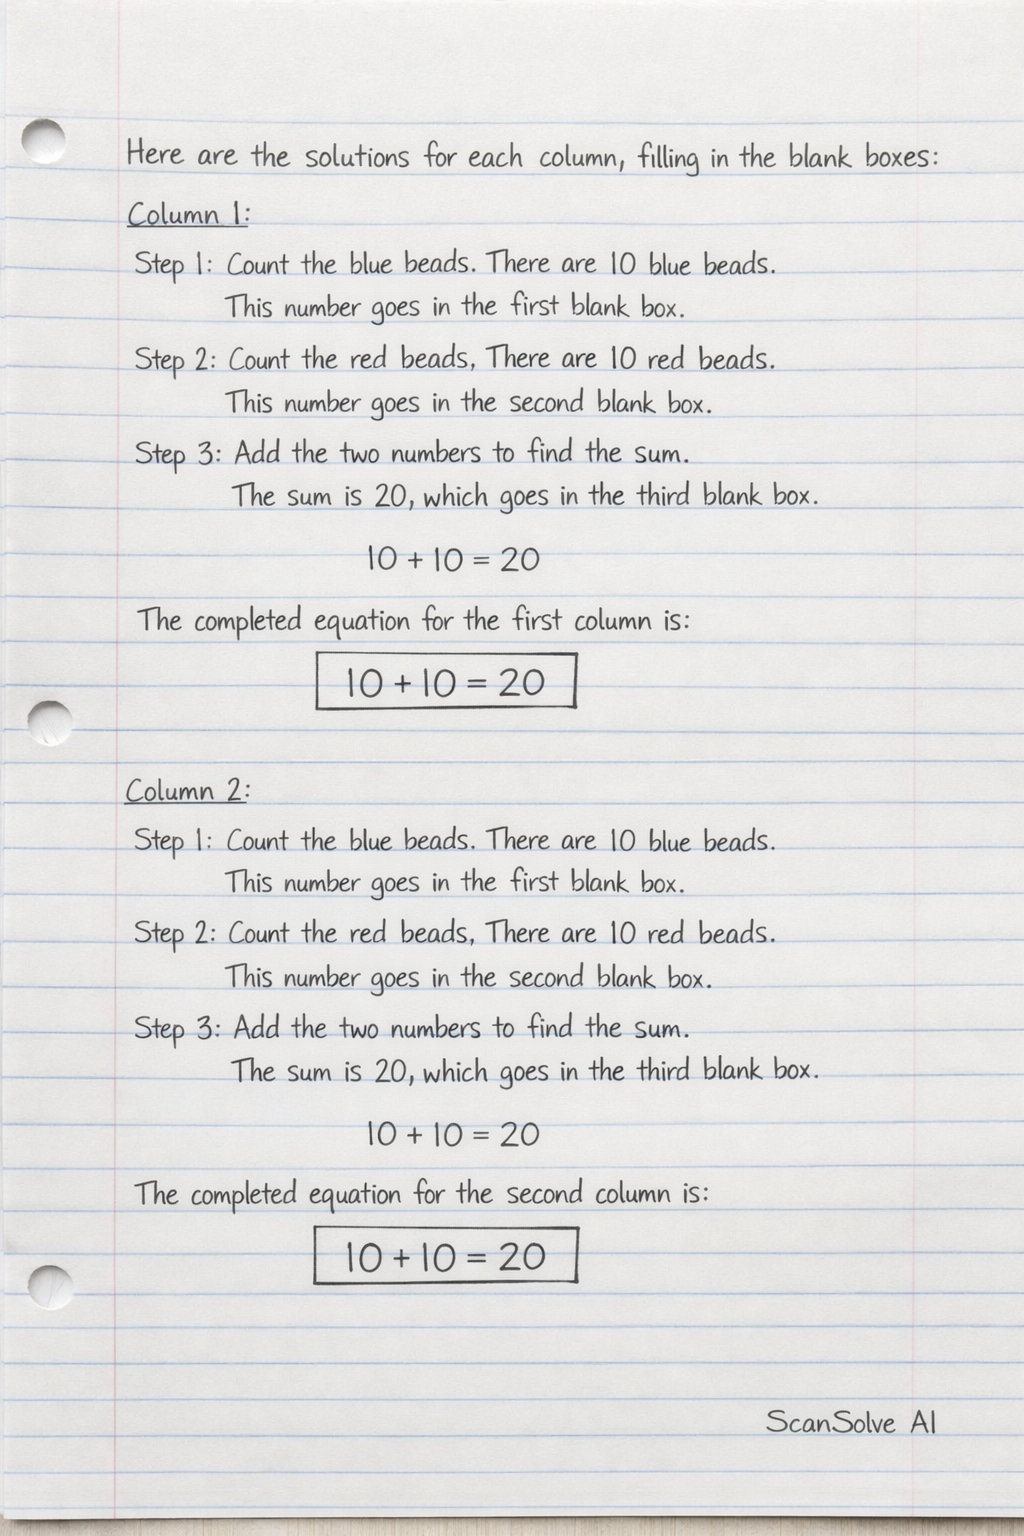 Here are the solutions for each column, filling in the blank boxes:
Column 1:
Step 1: Count the blue beads. There are 10 blue beads.
This number goes in the first blank box.
Step 2: Count the red beads, There are 10 red beads.
This number goes in the second blank box.
Step 3: Add the two numbers to find the sum.
The sum is 20, which goes in the third blank box.
10 + 10 = 20
The completed equation for the first column is:
10 + 10 = 20
Column 2:
Step 1: Count the blue beads. There are 10 blue beads.
This number goes in the first blank box.
Step 2: Count the red beads, There are 10 red beads.
This number goes in the second blank box.
Step 3: Add the two numbers to find the sum.
The sum is 20, which goes in the third blank box.
10 + 10 = 20
The completed equation for the second column is:
10 + 10 = 20
ScanSolve AI